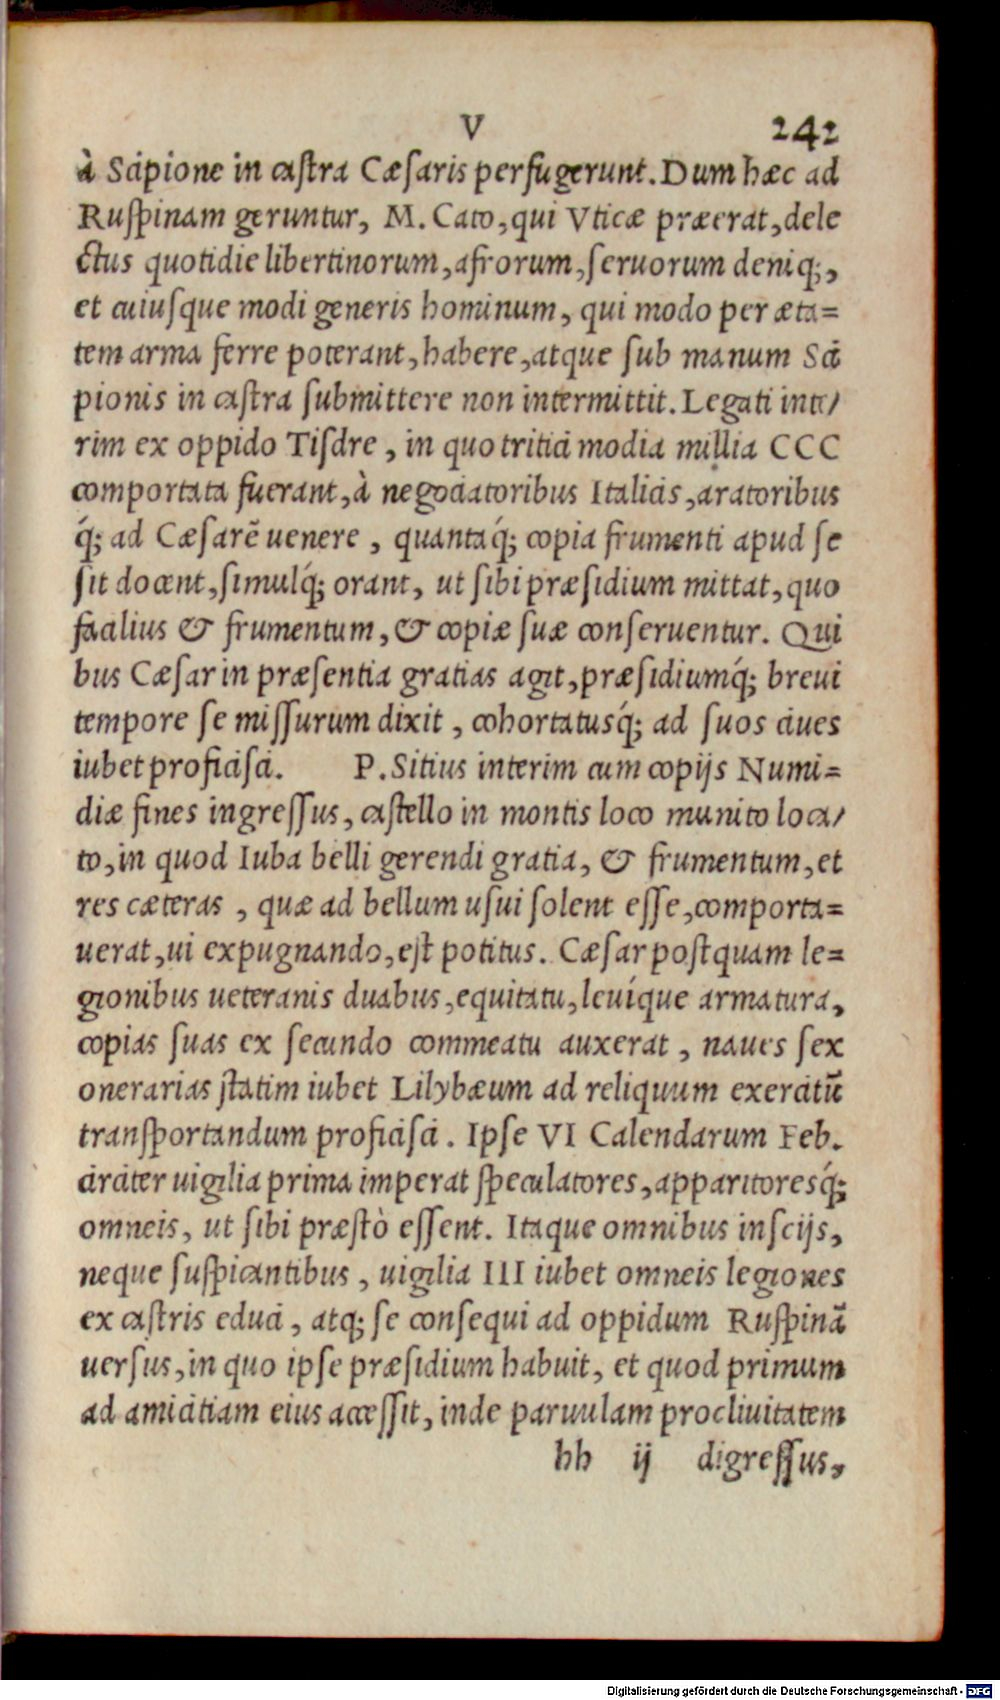 V 242
à Scipione in castra Cæsaris perfugerunt. Dum hæc ad
Ruspinam geruntur, M. Cato, qui Vticæ præerat, dele
ctus quotidie libertinorum, afrorum, seruorum deniq;,
et cuiusque modi generis hominum, qui modo per æta=
tem arma ferre poterant, habere, atque sub manum Sci
pionis in castra submittere non intermittit. Legati inte/
rim ex oppido Tisdre, in quo tritici modia millia CCC
comportata fuerant, à negociatoribus Italicis, aratoribus
q́; ad Cæsarē uenere, quantaq́; copia frumenti apud se
sit docent, simulq́; orant, ut sibi præsidium mittat, quo
facilius & frumentum, & copiæ suæ conseruentur. Qui
bus Cæsar in præsentia gratias agit, præsidiumq́; breui
tempore se missurum dixit, cohortatusq́; ad suos ciues
iubet proficisci. P. Sitius interim cum copijs Numi=
diæ fines ingressus, castello in montis loco munito loca/
to, in quod Iuba belli gerendi gratia, & frumentum, et
res cæteras, quæ ad bellum usui solent esse, comporta=
uerat, ui expugnando, est potitus. Cæsar postquam le=
gionibus ueteranis duabus, equitatu, leuíque armatura,
copias suas ex secundo commeatu auxerat, naues sex
onerarias statim iubet Lilybæum ad reliquum exercitū
transportandum proficisci. Ipse VI Calendarum Feb.
circiter uigilia prima imperat speculatores, apparitoresq́;
omneis, ut sibi præstò essent. Itaque omnibus inscijs,
neque suspicantibus, uigilia III iubet omneis legiones
ex castris educi, atq; se consequi ad oppidum Ruspinā
uersus, in quo ipse præsidium habuit, et quod primum
ad amicitiam eius accessit, inde paruulam procliuitatem
hh ij digressus,
Digitalisierung gefördert durch die Deutsche Forschungsgemeinschaft - DFG